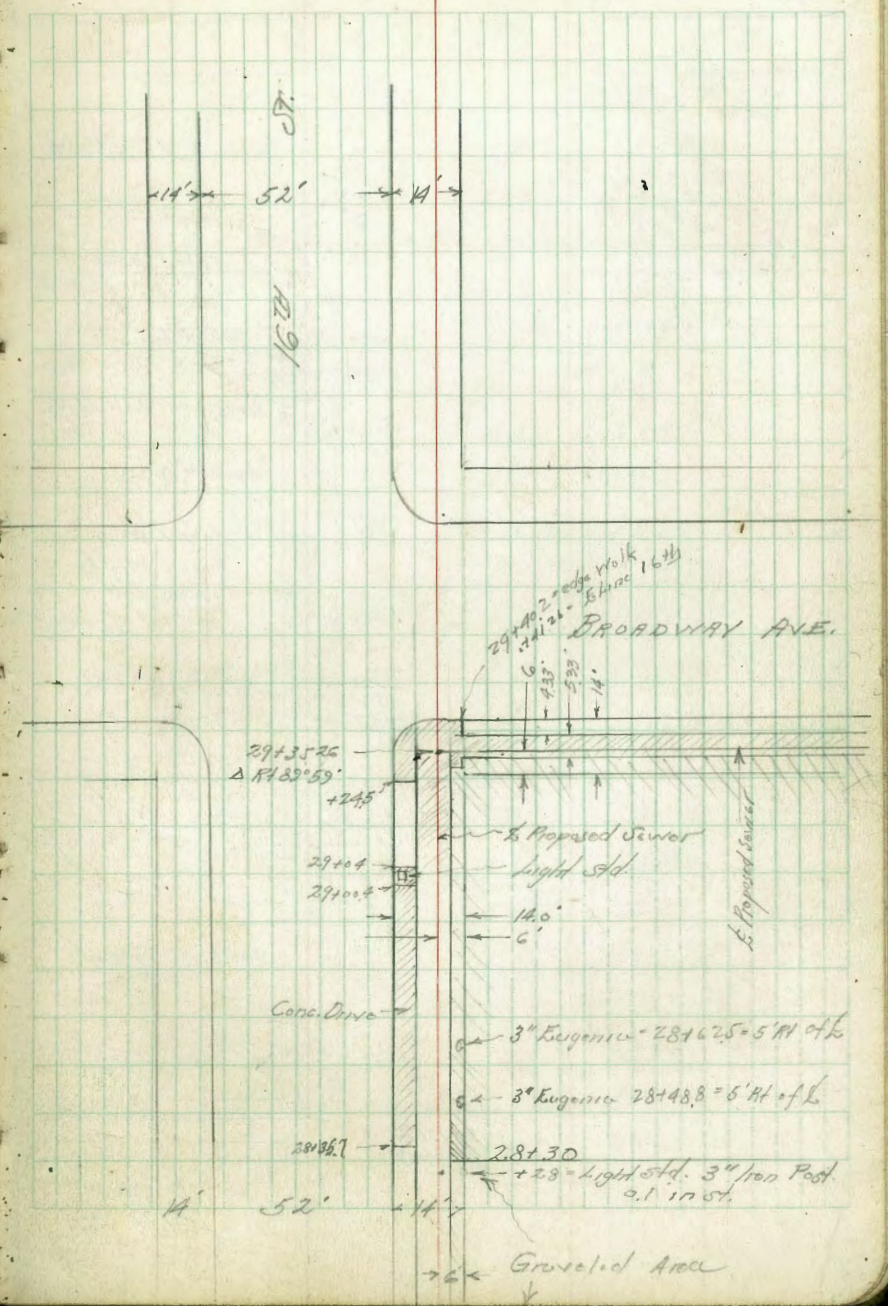 ST.
14' 52' 14'
16TH
29+40.2 = edge Walk
+41.26 = E Line 16th
BROADWAY AVE.
6 4.33' 5.33' 14'
29+35.26
Δ Rt 89°59'
+24.5
℄ Proposed Sewer
29+04
Light Std.
29+00.4
14.0'
6'
℄ Proposed Sewer
Conc. Drive
3" Eugenia - 28+62.5 = 5' Rt of ℄
3" Eugenia 28+48.8 = 5' Rt of ℄
28+36.7
28+30
+28 = Light Std. 3" Iron Post.
0.1 in St.
14' 52' 14'
Graveled Area
6'